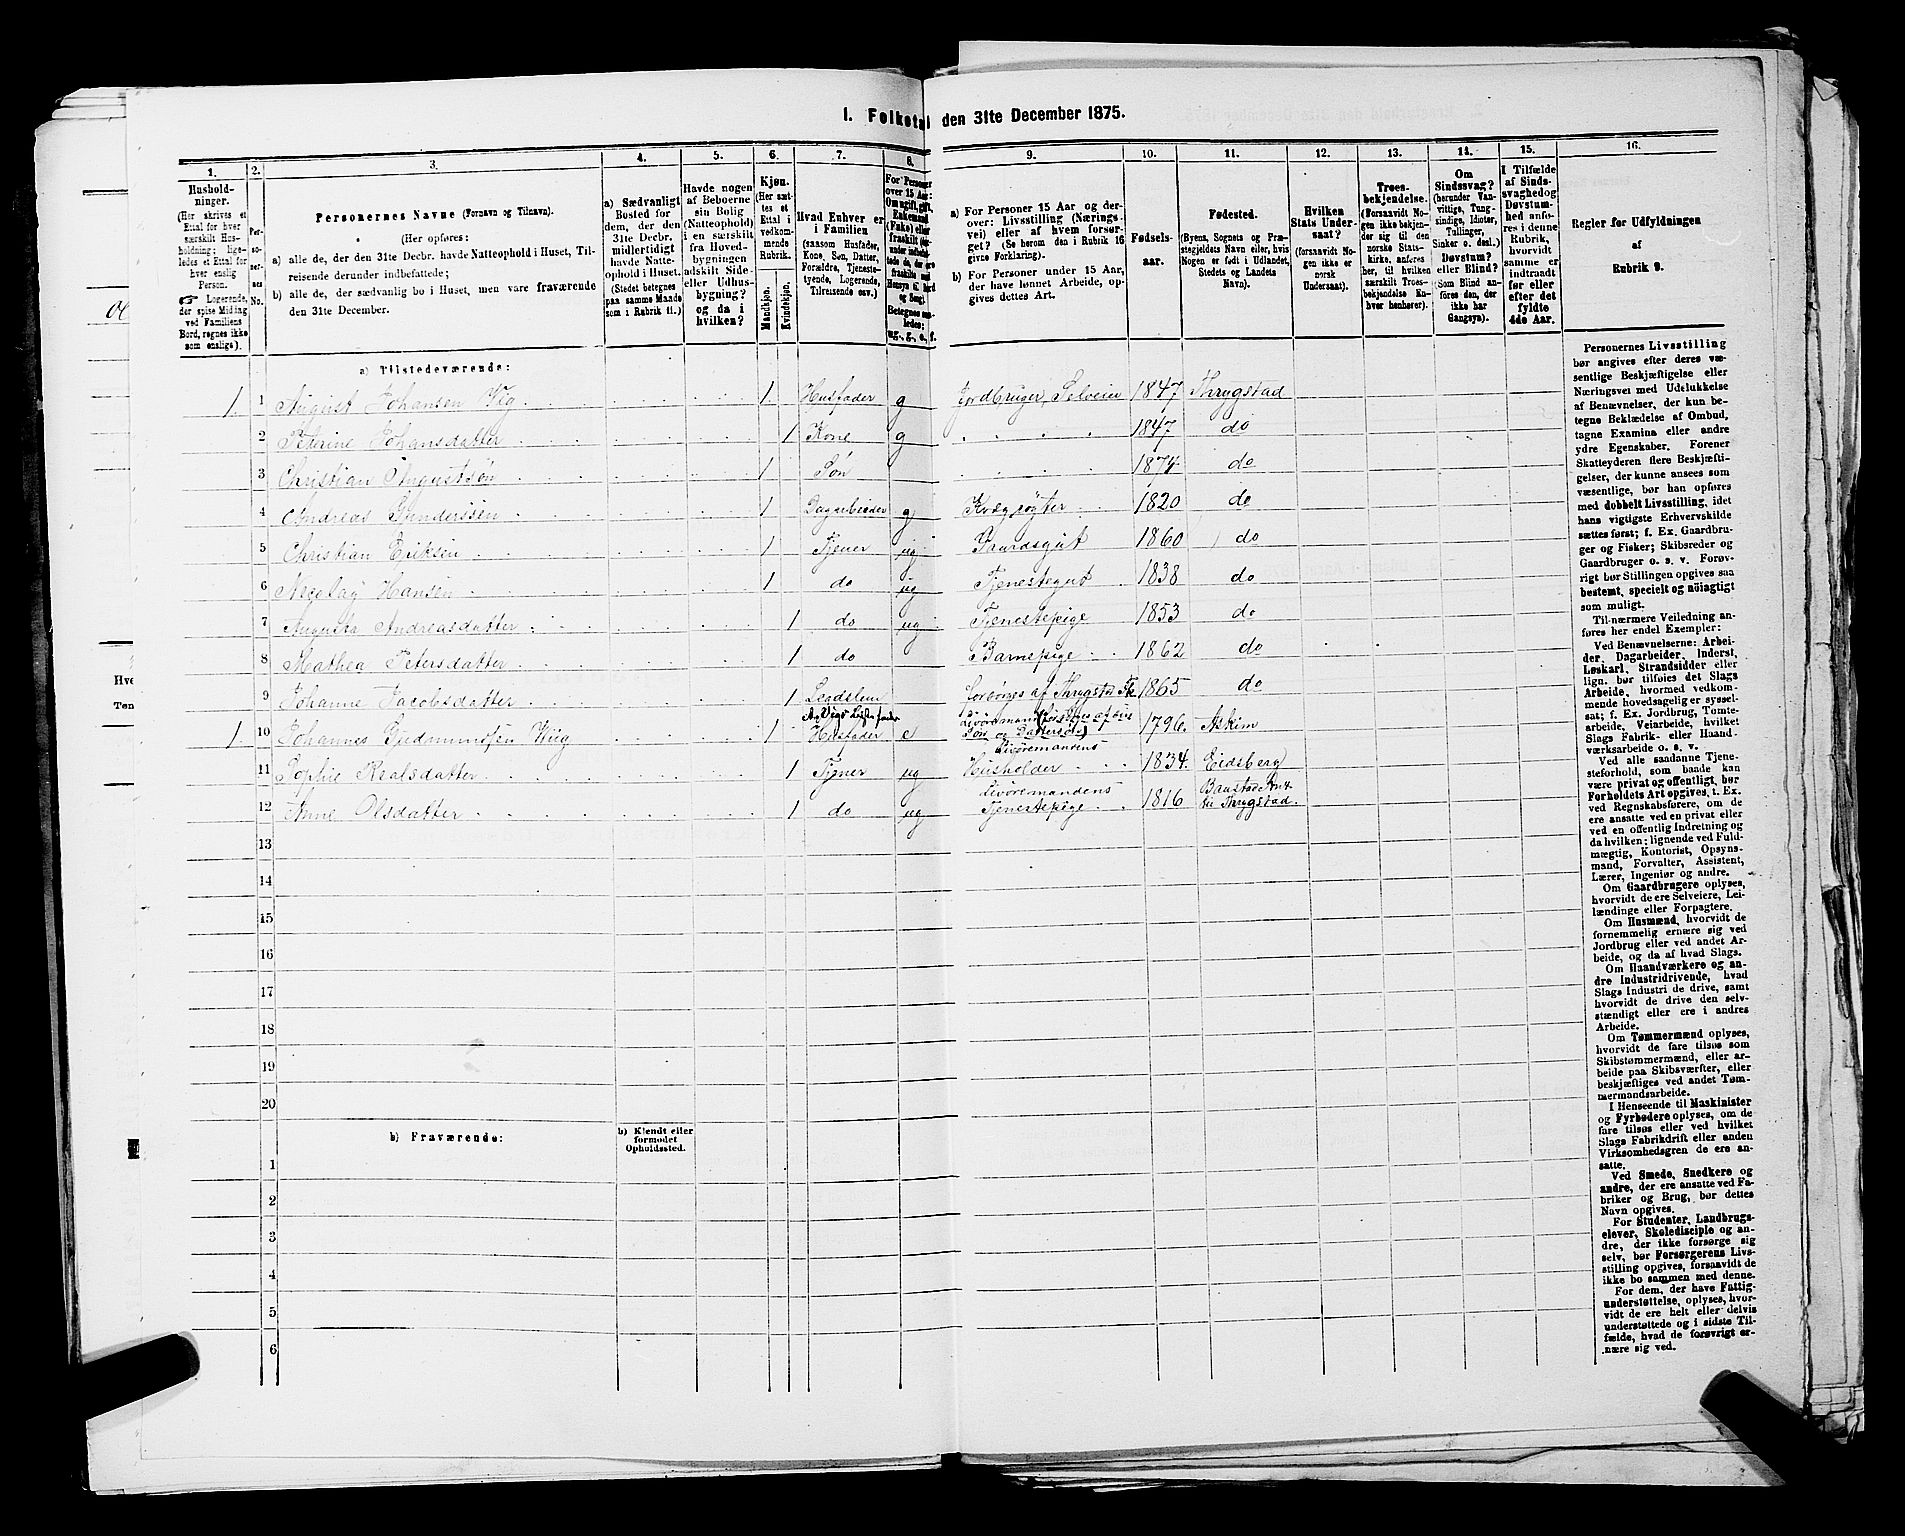 I. Folketal den 31te December 1875.
1. 2. 3. 4. 5. 6. 7. 8. 9. 10. 11. 12. 13. 14. 15. 16.
Hushold-
ninger.
(Her skrives et
Ettal for hver
særskilt Hus-
holdning; lige-
ledes et Ettal
for hver enslig
Person.
☞ Logerende,
der spise Middag
ved Familiens
Bord, regnes ikke
som enslige).
Per-
so-
ner-
nes
No.
Personernes Navne (Fornavn og Tilnavn).
(Her opføres:
a) alle de, der den 31te Decbr. havde Natteophold i Huset, Til-
reisende derunder indbefattede;
b) alle de, der sædvanlig bo i Huset, men vare fraværende
den 31te December.
a) Sædvanligt
Bosted for
dem, der den
31te Decbr.
midlertidigt
havde Natte-
ophold i Huset.
(Stedet betegnes
paa samme Maade
som i Rubrik 11.)
Havde nogen
af Beboerne
sin Bolig
(Natteophold)
i en særskilt
fra Hoved-
bygningen
adskilt Side-
eller Udhus-
bygning?
og da i
hvilken?
Kjøn.
(Her sæt-
tes et
Ettal i
vedkom-
mende
Rubrik.
Mandkjøn.
Kvindekjøn.
Hvad Enhver er
i Familien
(saasom Husfader,
Kone, Søn, Datter,
Forældre, Tjeneste-
tyende, Logerende,
Tilreisende osv.)
For Personer
over 15 Aar:
Om ugift, gift,
Enkemand
(Enke) eller
fraskilt
Betegnes saa-
ledes:
ug., g., e., f.
a) For Personer 15 Aar og der-
over: Livsstilling (Nærings-
vei) eller af hvem forsør-
get? (Se herom den i Rubrik 16
givne Forklaring).
b) For Personer under 15 Aar,
der have lønnet Arbeide, op-
gives dettes Art.
Fødsels-
aar.
Fødested.
(Byens, Sognets og Præ-
stegjeldets Navn eller, hvis
Nogen er født i Udlandet,
Stedets og Landets
Navn).
Hvilken
Stats Under-
saat?
(forsaavidt No-
gen ikke er
norsk
Undersaat).
Troes-
bekjendelse.
(Forsaavidt No-
gen ikke bekjen-
der sig til den
norske Stats-
kirke, anføres
her, til hvilken
særskilt Troes-
bekjendelse En-
hver henhører).
Om
Sindssvag?
(herunder Van-
vittige, Tung-
sindige, Idioter,
Tullinger,
Sinker o. desl.)
Døvstum?
eller Blind?
(Som Blind an-
føres den, der
ikke har
Gangsyn).
I Tilfælde
af Sinds-
svaghed og
Døvstum-
hed anfø-
res i denne
Rubrik,
hvorvidt
samme er
indtraadt
før eller
efter det
fyldte
4de Aar.
Regler for Udfyldningen
af
Rubrik 9.
a) Tilstedeværende:
1. 1 August Johansen Wig 1. Husfader g Jordbruger, Selveier 1847 Thrygstad
2 Petrine Johansdatter 1 Kone g 1847 do
3 Christian Augustsøn 1 Søn 1874 do
4 Andreas Gunderssen 1 Dagarbeider g Kvægrøgter 1820 do
5 Christian Eriksen 1 Tjener ug Gaardsgut 1860 do
6 Nicolay Hansen 1 do ug Tjenestegut 1838 do
7 Augusta Andreasdatter 1 do ug Tjenestepige 1853 do
8 Mathea Petersdatter 1 do Barnepige 1862 do
9 Johanne Jacobsdatter 1 Lægdslem forsørges af Thrygstad Fk 1865 do
1 10 Johannes Gudmundsen Wiig 1 Husfader e Livøremand Søn og Dattersøn) 1796. Askim
11 Sophie Kralsdatter 1 Tjener ug Livøremandens Husholder 1834. Eidsberg
12 Anne Olsdatter 1 do ug Livøremandens Tjenestepige 1816 til Thrygstad.
13
14
15
16
17
18
19
20
b) Fraværende:
b) Kjendt eller
formodet
Opholdssted.
1
2
3
4
5
6
Personernes Livsstilling
bør angives efter deres væ-
sentlige Beskjæftigelse eller
Næringsvei med Udelukkelse
af Benævnelser, der kun be-
tegne Beklædelse af Ombud,
tagne Examina eller andre
ydre Egenskaber. Forener
Skatteyderen flere Beskjæfti-
gelser, der kunne ansees som
væsentlige, bør han opføres
med dobbelt Livsstilling, idet
hans vigtigste Erhvervskilde
sættes først; f. Ex. Gaardbru-
ger og Fisker; Skibsreder og
Gaardbruger o. s. v. Forøv-
rigt bør Stillingen opgives saa
bestemt, specielt og nøiagtigt
som muligt.
Til nærmere Veiledning an-
føres her endel Exempler:
Ved Benævnelserne: Arbei-
der, Dagarbeider, Inderst,
Løskarl, Strandsidder eller
lign. bør tilføies det Slags
Arbeide, hvormed vedkom-
mende hovedsagelig er syssel-
sat; f. Ex. Jordbrug, Tømte-
arbeide, Veiarbeide, hvilket
Slags Fabrik- eller Haand-
værksarbeide o. s. v.
Ved alle saadanne Tjene-
steforhold, som baade kan
være privat og offentligt, bør
Forholdets Art opgives, t. Ex.
ved Regnskabsførere, om de
ere ansatte ved en privat eller
ved en offentlig Indretning og
da hvilken; lignende ved Fuld-
mægtig, Kontorist, Opsyns-
mand, Forvalter, Assistent,
Lærer, Ingeniør og andre.
Om Gaardbrugere oplyses,
hvorvidt de ere Selveiere, Lei-
lændinge eller Forpagtere.
Om Husmænd, hvorvidt de
fornemmelig ernære sig ved
Jordbrug eller ved andet Ar-
beide, og da af hvad Slags.
Om Haandværkere og an-
dre Industridrivende, hvad
Slags Industri de drive, samt
hvorvidt de drive den selv-
stændigt eller ere i andres
Arbeide.
Om Tømmermænd oplyses,
hvorvidt de fare tilsøs som
Skibstømmermænd, eller ar-
beide paa Skibsværfter, eller
beskjæftiges ved andet Tøm-
mermandsarbeide.
I Henseende til Maskinister
og Fyrbødere oplyses, om de
fare tilsøs eller ved hvilket
Slags Fabrikdrift eller anden
Virksomhedsgren de ere an-
satte.
Ved Smede, Snedkere og
andre, der ere ansatte ved Fa-
briker og Brug, bør dettes
Navn opgives.
For Studenter, Landbrugs-
elever, Skoledisciple og an-
dre, der ikke forsørge sig
selv, bør Forsørgerens Livs-
stilling opgives, forsaavidt de
ikke bo sammen med denne.
For dem, der have Fattig-
understøttelse, oplyses, hvor-
vidt de ere helt eller delvis
understøttede og i sidste Til-
fælde, hvad de forøvrigt er-
nære sig ved.